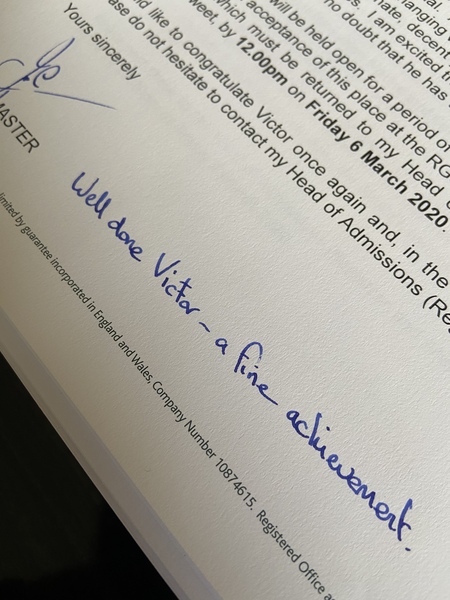 anging
nate, decent
s. I am excited th
no doubt that he has
will be held open for a period of
acceptance of this place at the RG
which must be returned to my Head
weet, by 12.00pm on Friday 6 March 2020.
ld like to congratulate Victor once again and, in the
ease do not hesitate to contact my Head of Admissions (Re
Yours sincerely
MASTER
Well done Victor - a fine achievement.
limited by guarantee incorporated in England and Wales, Company Number 10874615. Registered Office a